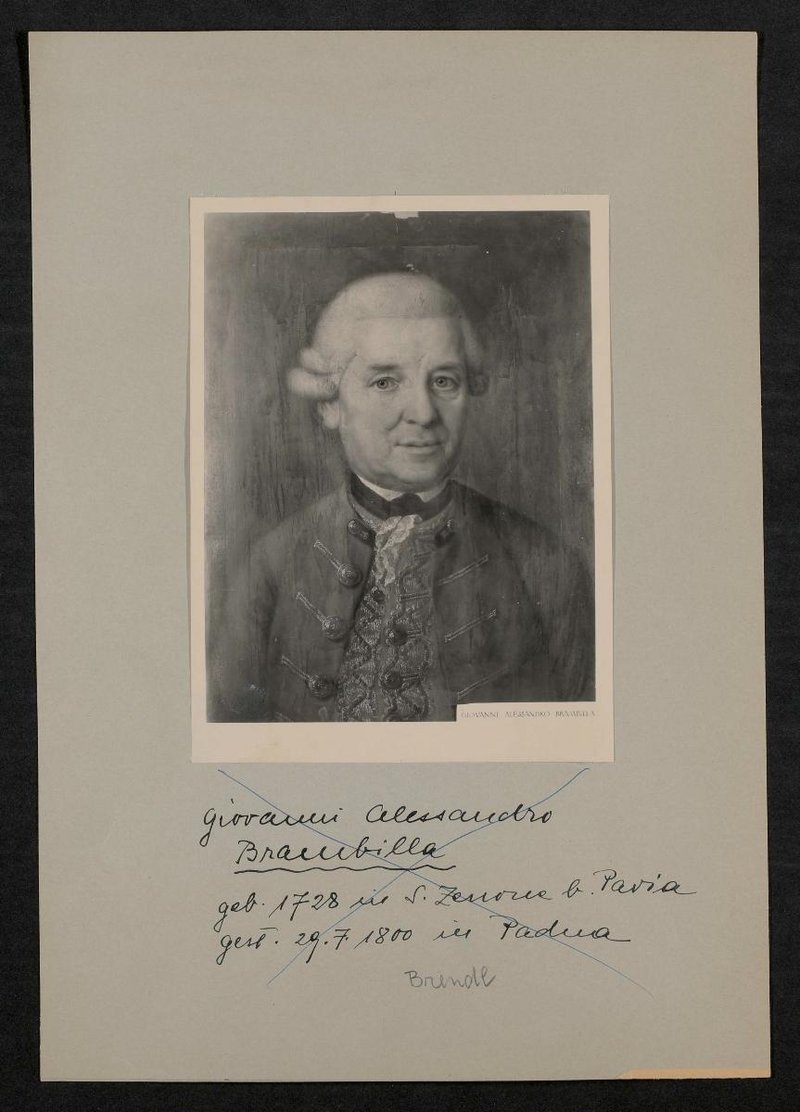 GIOVANNI ALESSANDRO BRAMBILLA
Giovanni Alessandro
Brambilla
geb. 1728 in S. Zenone b. Pavia
gest. 29.7.1800 in Padua
Brendl